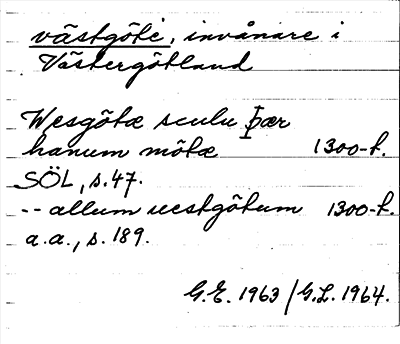 västgöte, invånare i
Västergötland
Wesgötæ sculu þær
hanum mötæ 1300-t.
SÖL, s. 47.
-- allum westgötum 1300-t.
a.a., s. 189.
G.E. 1963 / G.L. 1964.